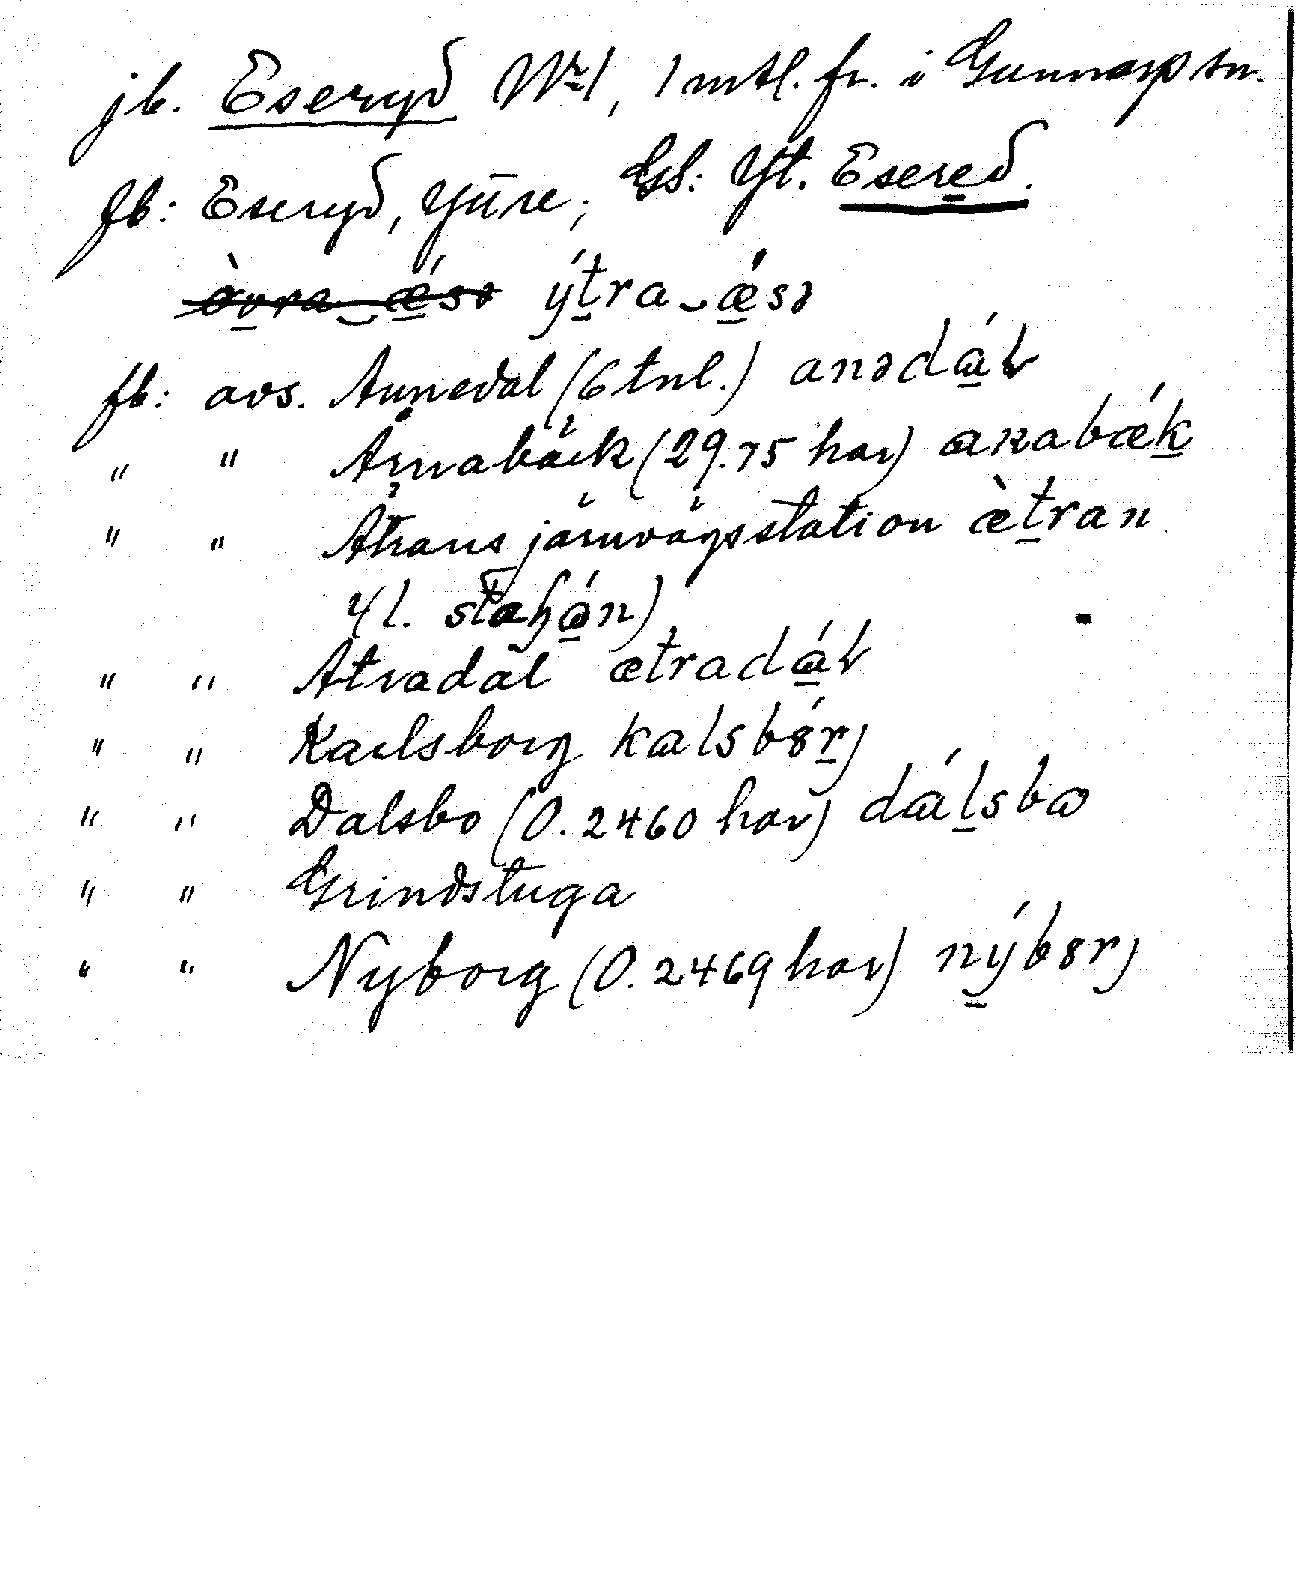 jb. Eseryd No 1, 1 mtl. fr. i Gunnarp sn.
fb: Eseryd, Yttre; GS: Yt. Esered.
òvra æ´sə ýtra æ´sə
fb: avs. Annedal (6 tnl.) anədáł
" " Årnabäck (29.75 har) aʀabæ´k
" " Ätrans järnvägsstation æ`tran
(l. staʃɷ´n)
" " Ätradal ætradáł
" " Karlsborg kalsbórj
" " Dalsbo (0.2460 har) dálsbɷ
" " Grindstuga
" " Nyborg (0.2469 har) nýborj